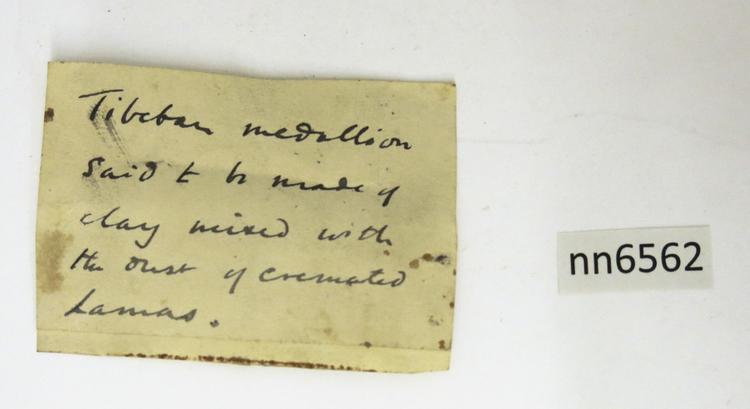 Tibetan medallion
said to be made of
clay mixed with
the dust of cremated
Lamas.
nn6562